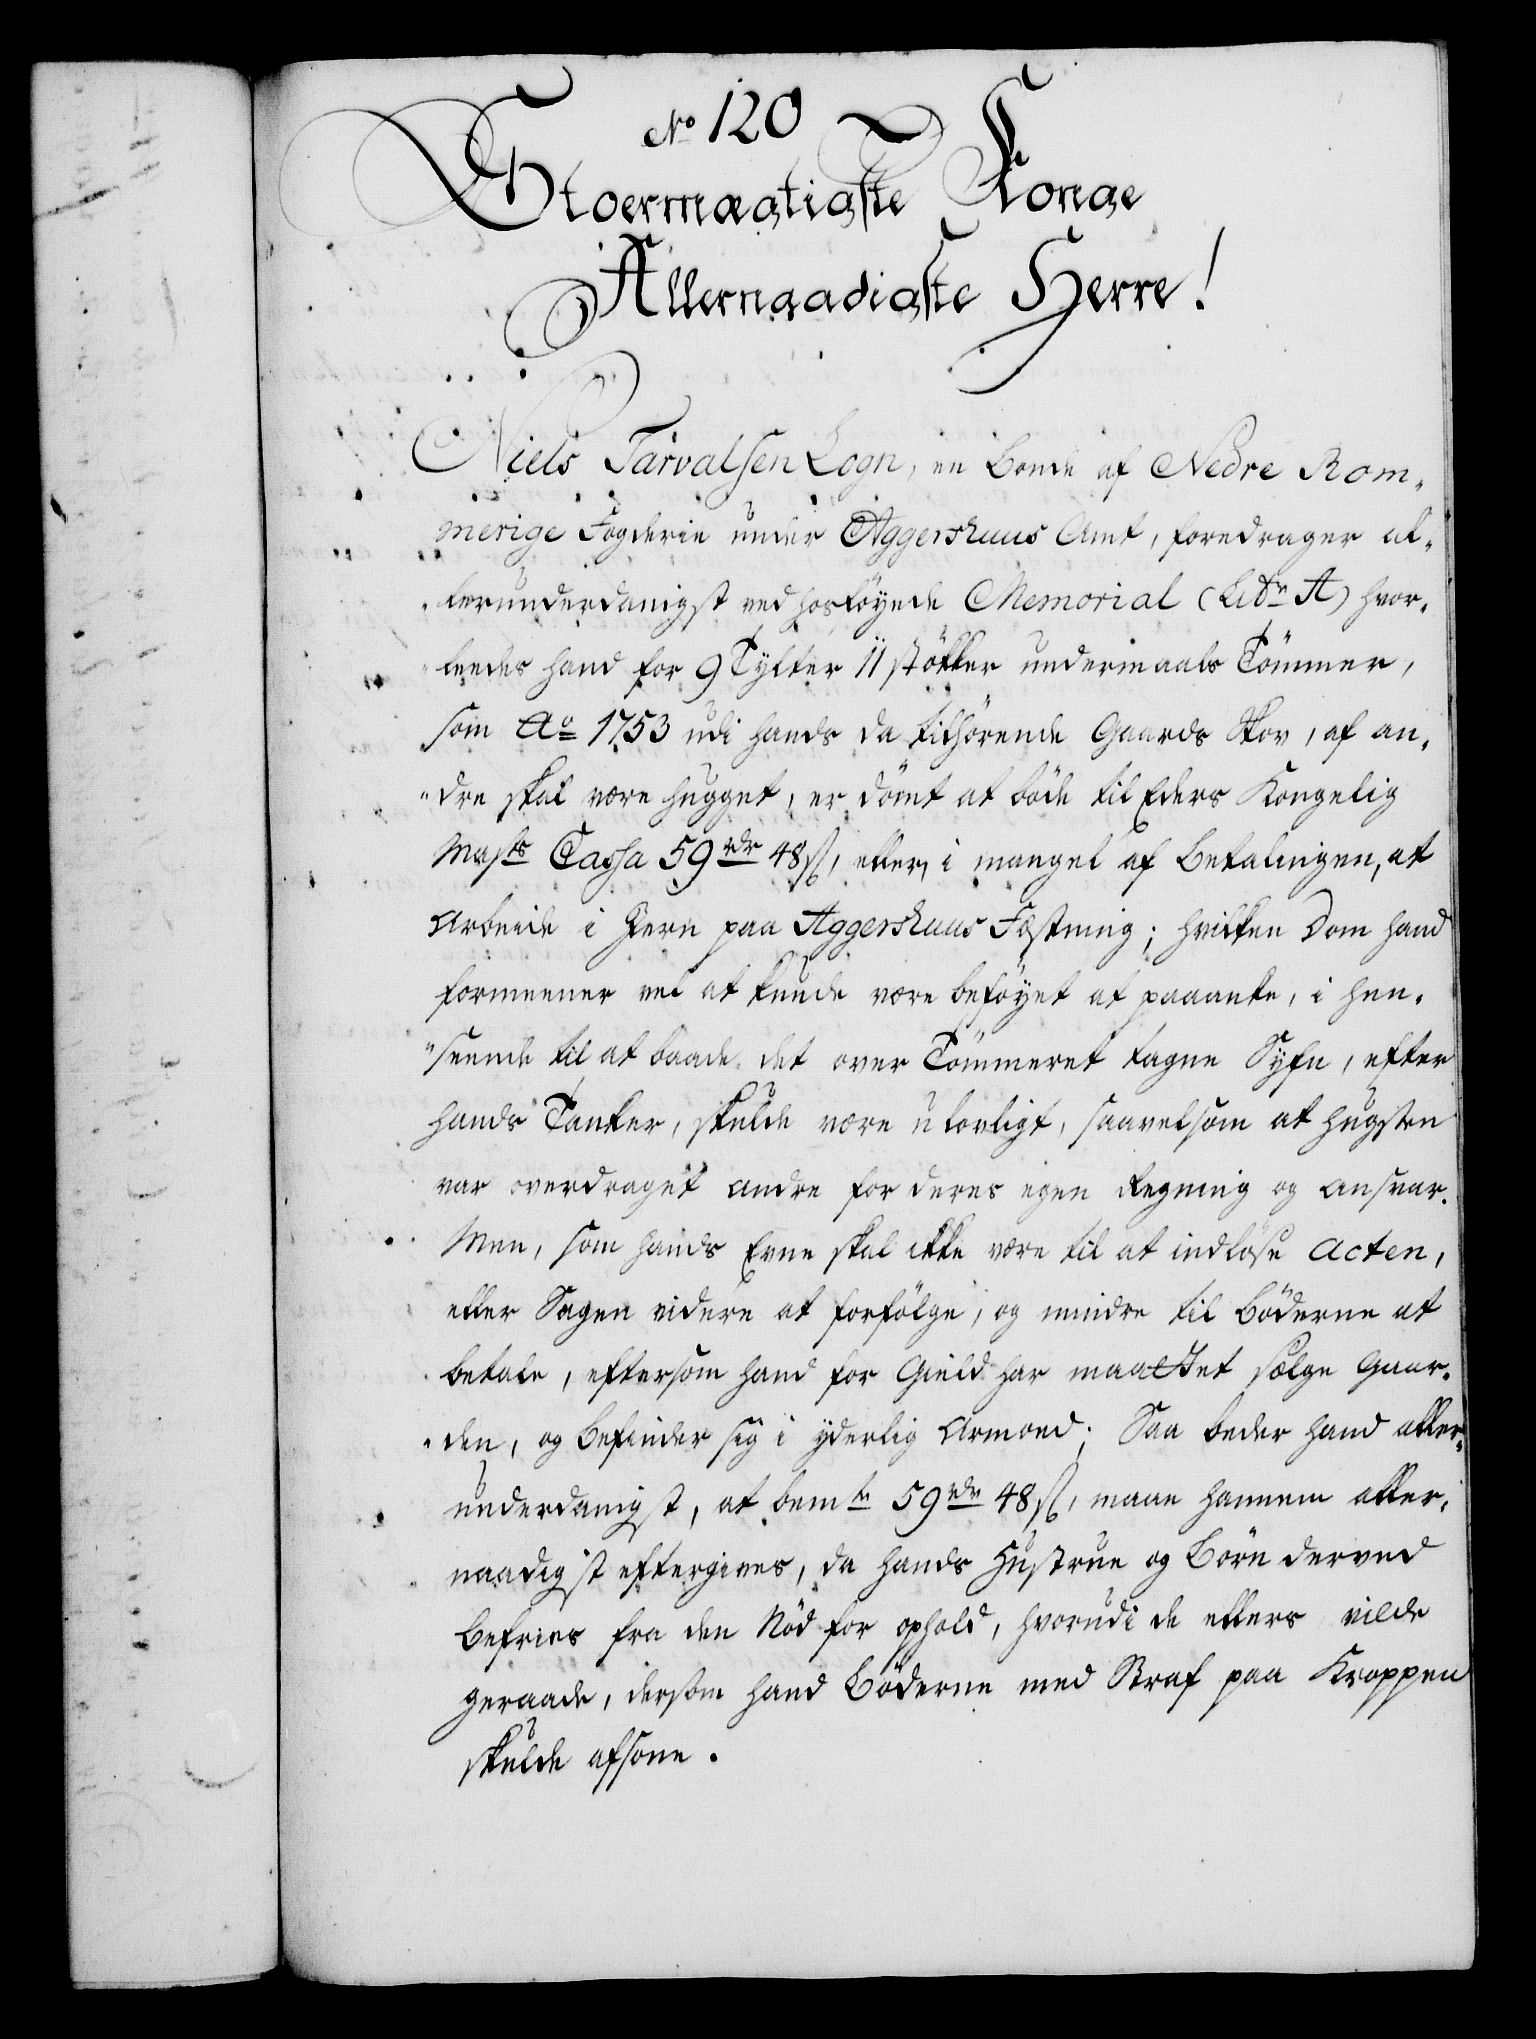 No 120
Stoermægtigste Konge
Allernaadigste Herre!
Niels Tarvalsen Logn, en Bonde af Nedre Rom-
merige Fogderie under Aggershuus Amt, foredrager al-
lerunderdanigst ved hosföyede Memorial (Litr A) hvor-
ledes hand for 9 Tylter 11 stökker undermaals Tömmer,
som Ao 1753 udi hands da tilhörende Gaards Skov, af an-
dre skal være hugget, er dömt at böde til Eders Kongelig
Mayts Cassa 59 rdr 48 s, eller, i mangel af Betalingen, at
Arbeide i Jern paa Aggershuus Fæstning; hvilken Dom hand
formeener vel at kunde være beföyet at paaanke, i hen-
seende til at baade det over Tömmeret tagne Syfn, efter
hands Tanker, skulde være ulovligt, saavelsom at hugsten
var overdraget andre for deres egen Regning og Ansvar.
Men, som hands Evne skal ikke være til at indlöse Acten,
eller Sagen videre at forfölge, og mindre til Böderne at
betale, eftersom hand for Gield har maattet sælge Gaar-
den, og befinder sig i yderlig Armoed; Saa beder hand aller-
underdanigst, at bemte 59 rdr 48 s, maae hannem aller-
naadigst eftergives, da hands Hustrue og Börn derved
befries fra den Nöd for ophold, hvorudi de ellers vilde
geraade, dersom hand Böderne med Straf paa Kroppen
skulde afsone.